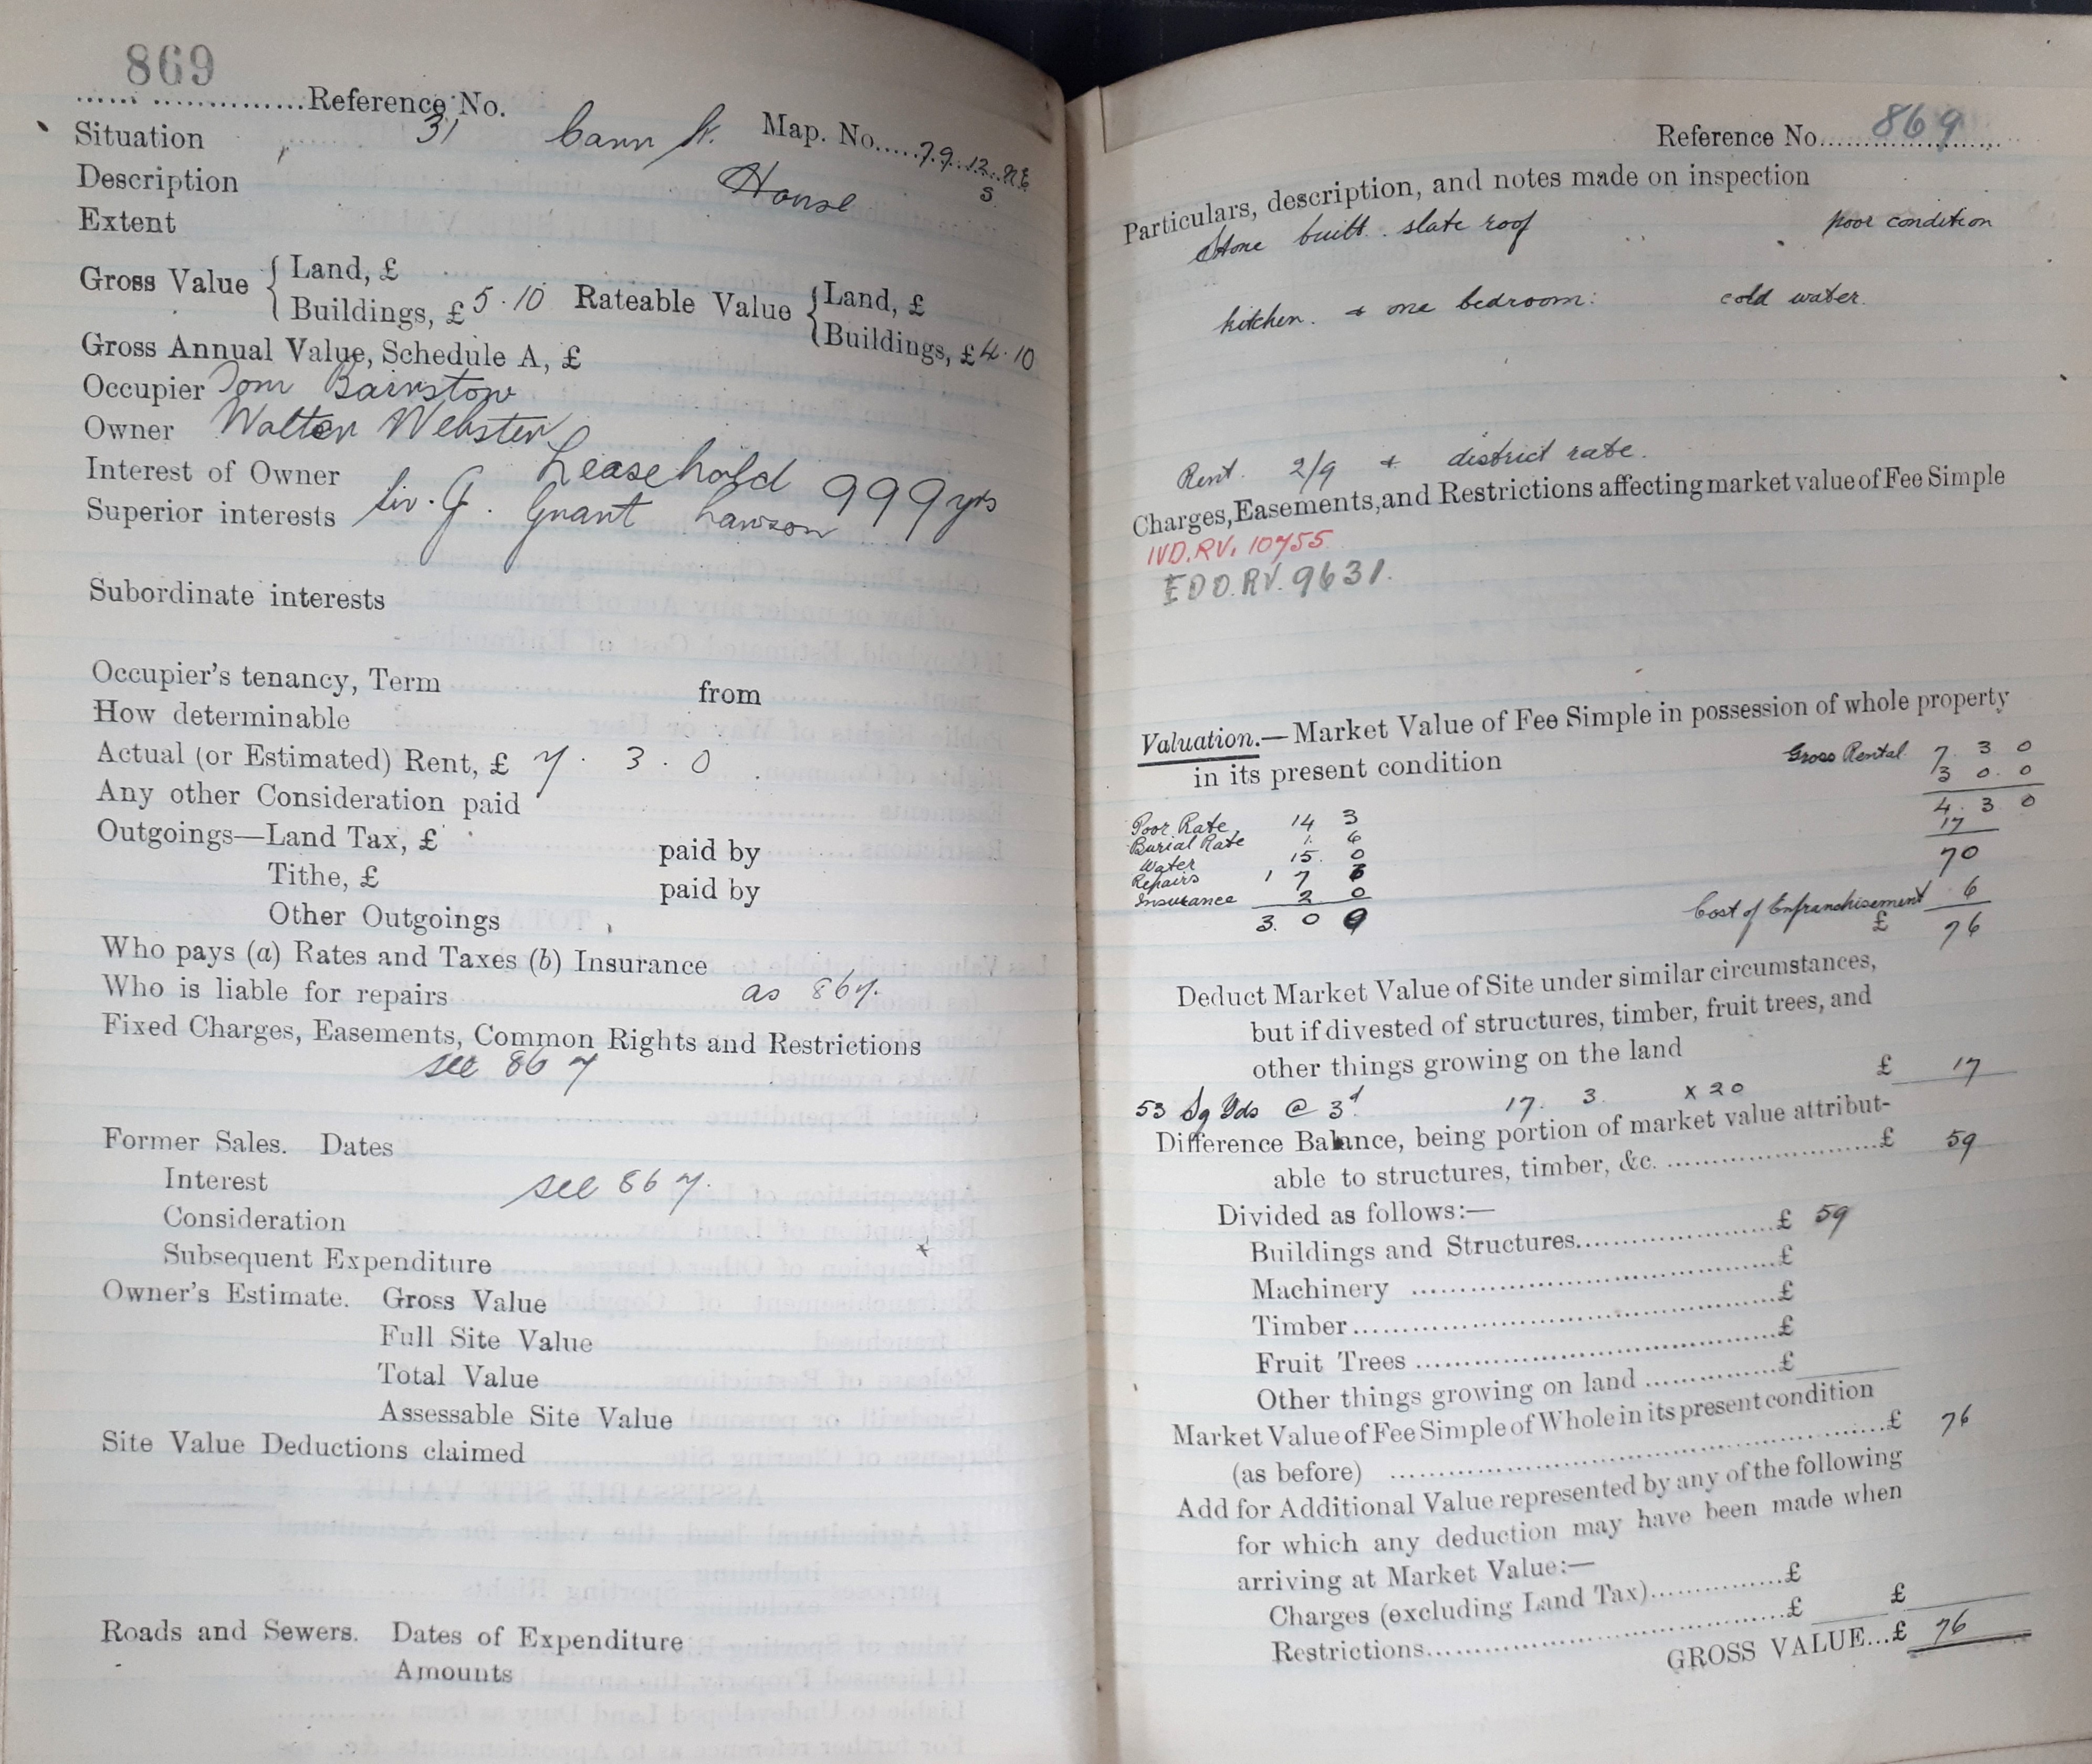 869
Reference No.
Situation 31 Cann St. Map. No. 79.12.N.E.
Description House 5
Extent
Gross Value { Land, £
Buildings, £ 5.10 Rateable Value { Land, £
Buildings, £ 4.10
Gross Annual Value, Schedule A, £
Occupier Tom Bairstow
Owner Walter Webster
Interest of Owner Leasehold 999 yrs
Superior interests Sir. J. Grant Lawson
Subordinate interests
Occupier's tenancy, Term from
How determinable
Actual (or Estimated) Rent, £ 7. 3. 0
Any other Consideration paid
Outgoings—Land Tax, £ paid by
Tithe, £ paid by
Other Outgoings
Who pays (a) Rates and Taxes (b) Insurance
Who is liable for repairs as 867.
Fixed Charges, Easements, Common Rights and Restrictions
see 867
Former Sales. Dates
Interest see 867.
Consideration
Subsequent Expenditure
Owner's Estimate. Gross Value
Full Site Value
Total Value
Assessable Site Value
Site Value Deductions claimed
Roads and Sewers. Dates of Expenditure
Amounts
Reference No. 869
Particulars, description, and notes made on inspection
Stone built. slate roof poor condition
kitchen. + one bedroom: cold water.
Rent. 2/9 + district rate.
Charges, Easements, and Restrictions affecting market value of Fee Simple
IVD.RV. 10755
EDD.RV. 9631.
Valuation.—Market Value of Fee Simple in possession of whole property
in its present condition Gross Rental 7. 3 0
3 0. 0
4. 3. 0
Poor Rate 14 3
17
Burial Rate 1. 6
Water 15. 0
70
Repairs 1 7
Insurance 2 0
Cost of Enfranchisement 6
3. 0 9
£ 76
Deduct Market Value of Site under similar circumstances,
but if divested of structures, timber, fruit trees, and
other things growing on the land £ 17
53 Sq Yds @ 3d. 17. 3. x 20
Difference Balance, being portion of market value attribut-
able to structures, timber, &c. £ 59
Divided as follows:—
Buildings and Structures £ 59
Machinery £
Timber £
Fruit Trees £
Other things growing on land £
Market Value of Fee Simple of Whole in its present condition
(as before) £ 76
Add for Additional Value represented by any of the following
for which any deduction may have been made when
arriving at Market Value:—
Charges (excluding Land Tax) £
Restrictions £ £
GROSS VALUE...£ 76